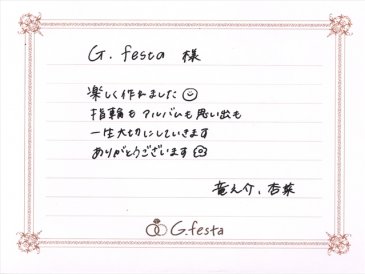 G. festa 様
楽しく作れました
指輪もアルバムも思い出も
一生大切にしていきます
ありがとうございます
竜之介、杏菜
G.festa